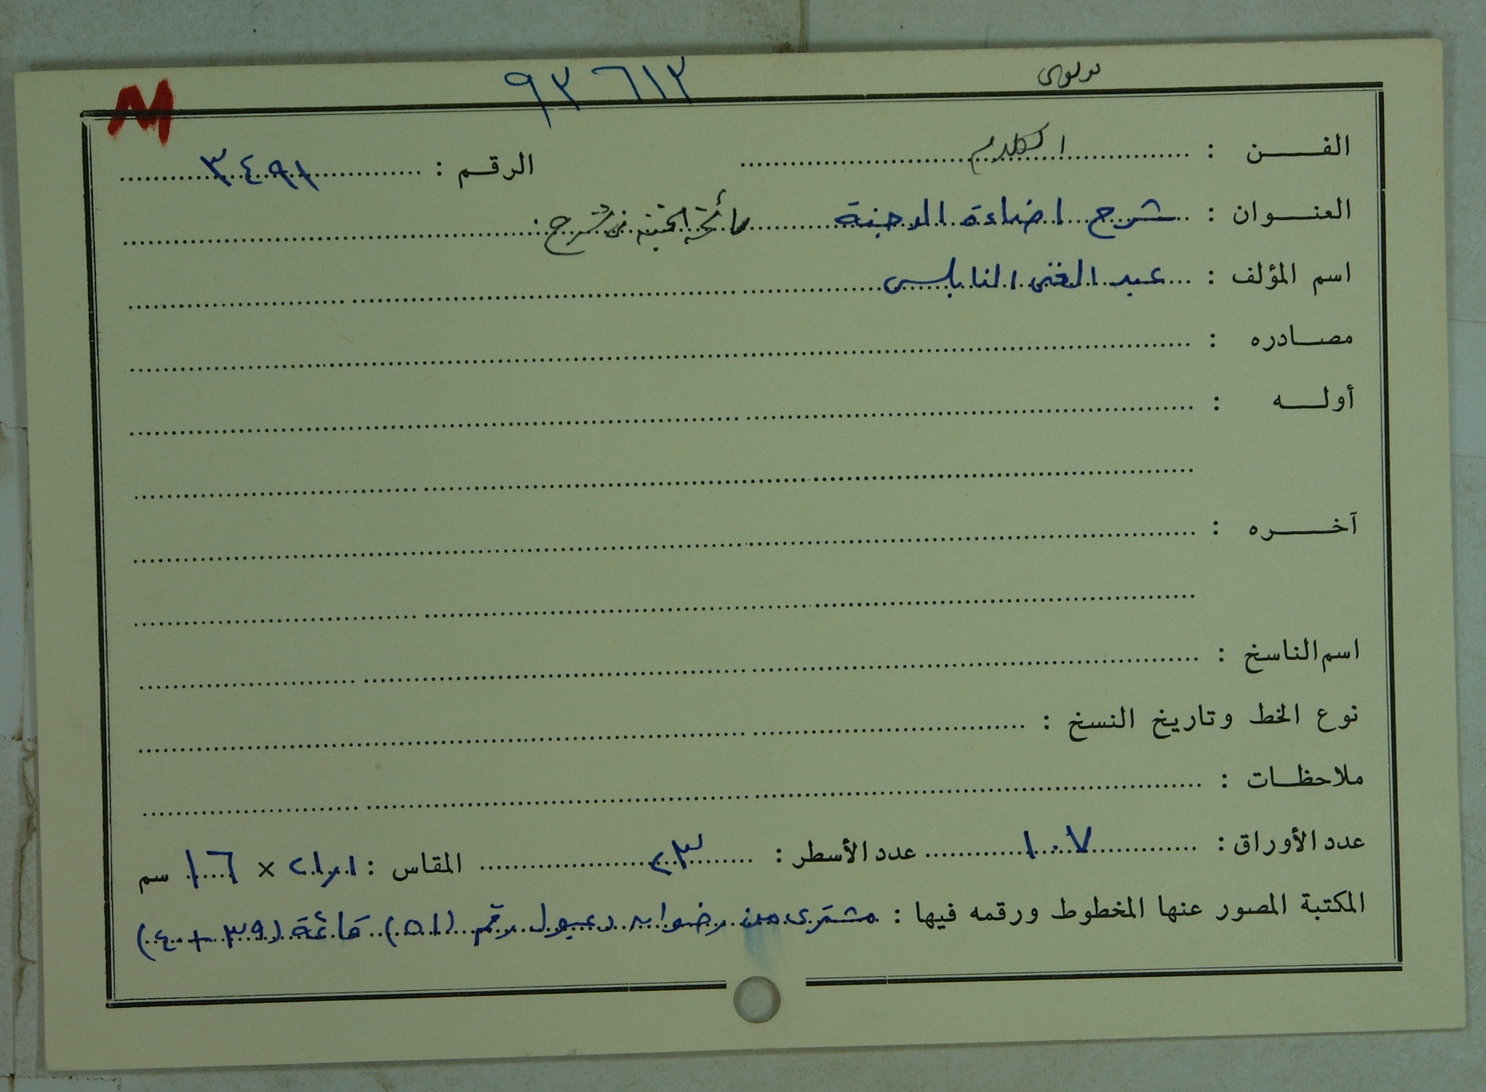 ٩٣٦١٣
M
الفن : الكلام الرقم : ٣٤٩١
العنوان : شرح اضاءة الدجنة رائحة الجنة في شرح
اسم المؤلف : عبد الغني النابلسي
مصادره :
أوله :
آخره :
اسم الناسخ :
نوع الخط وتاريخ النسخ :
ملاحظات :
عدد الأوراق : ١٠٧ عدد الأسطر : ٢٣ المقاس : × ١٦ سم
المكتبة المصور عنها المخطوط ورقمه فيها : مشترى من رضوان دعبول رقم (٥١) قائمة (٣٩ + ٤٠)